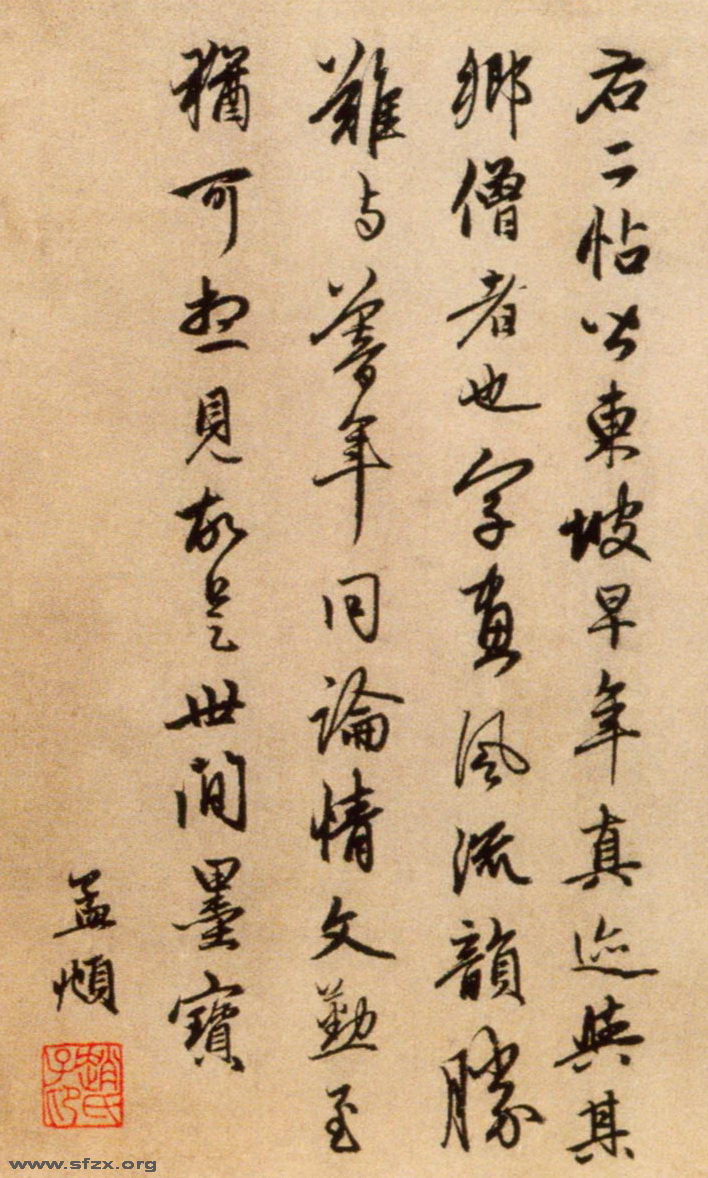 右二帖皆東坡早年真迹與其
鄉僧者也字畫風流韻勝
難与暮年同論情文勤至
猶可想見故是世間墨寶
孟頫
趙氏子印
www.sfzx.org